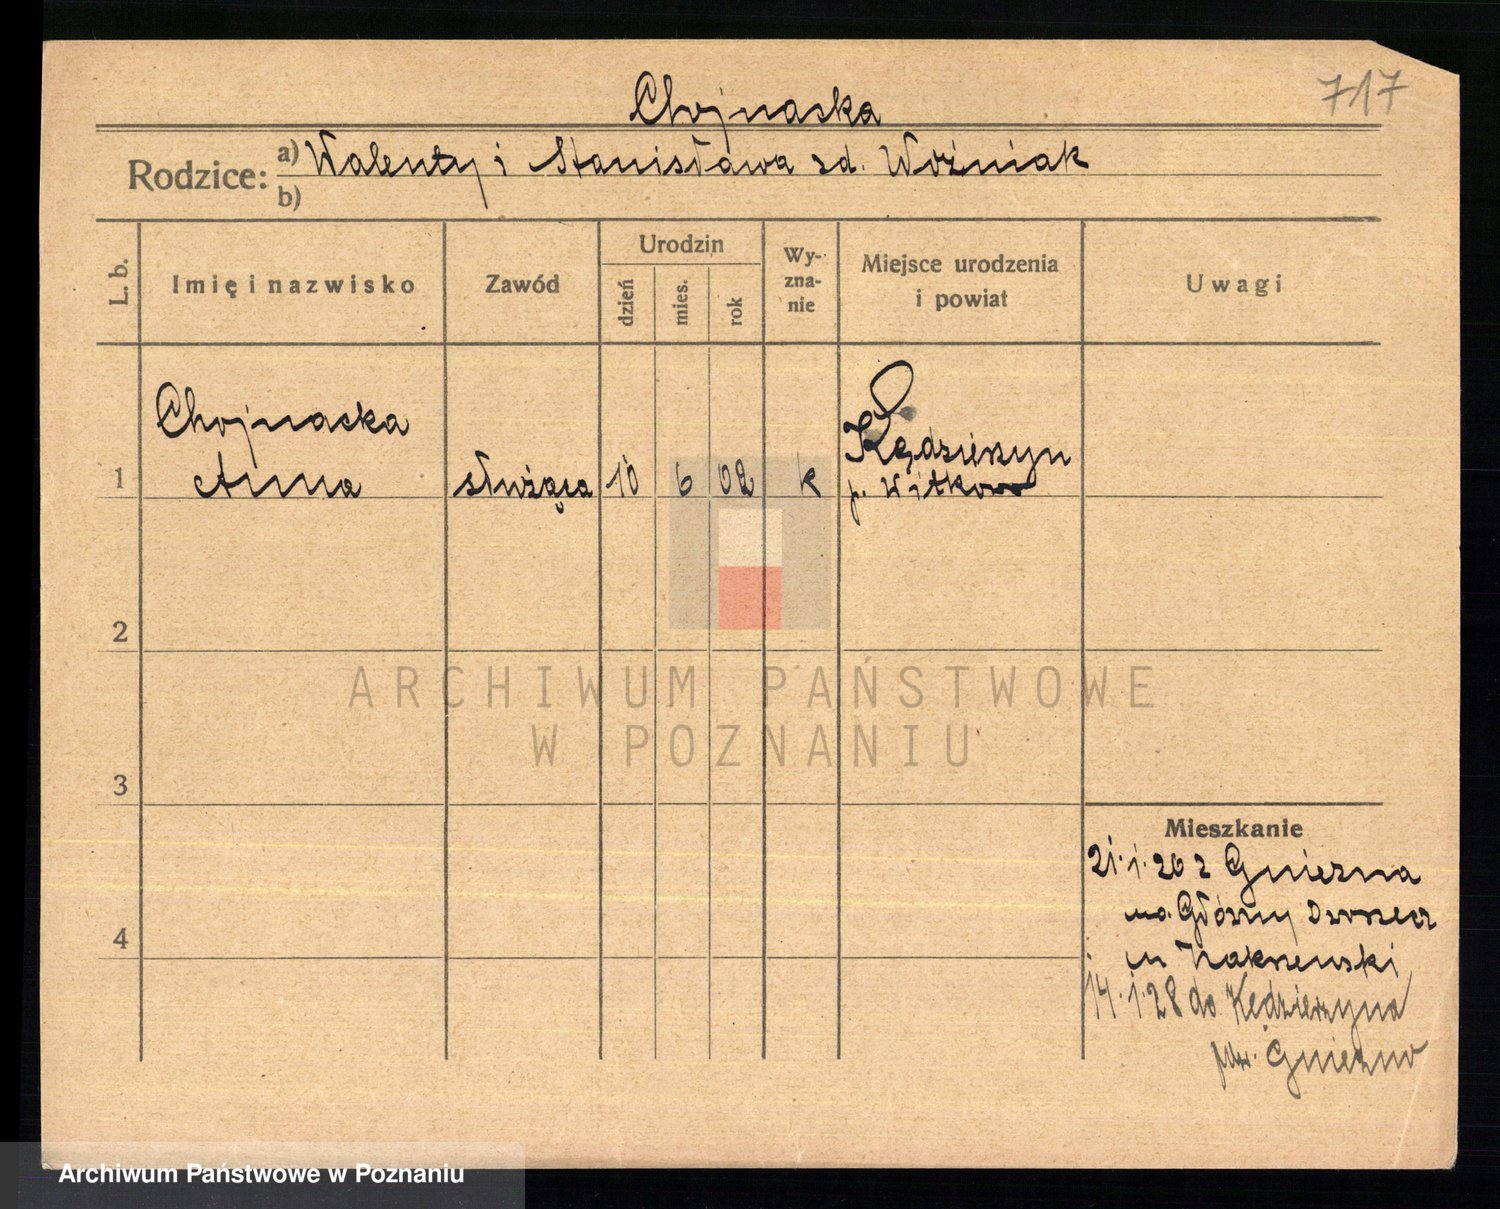 717
Chojnacka
Rodzice: a) Walenty i Stanisława zd. Woźniak
b)
L. b. Imię i nazwisko Zawód Urodzin dzień mies. rok Wy-zna-nie Miejsce urodzenia i powiat Uwagi
Chojnacka
1 Anna służąca 10 6 02 k Kędzierzyn
p. Witkowo
2
ARCHIWUM PAŃSTWOWE
W POZNANIU
3
Mieszkanie
21.1.26 z Gniezna
na Główny Dworzec
4
u Zakrzewski
14.1.28 do Kędzierzyna
pow. Gniezno
Archiwum Państwowe w Poznaniu